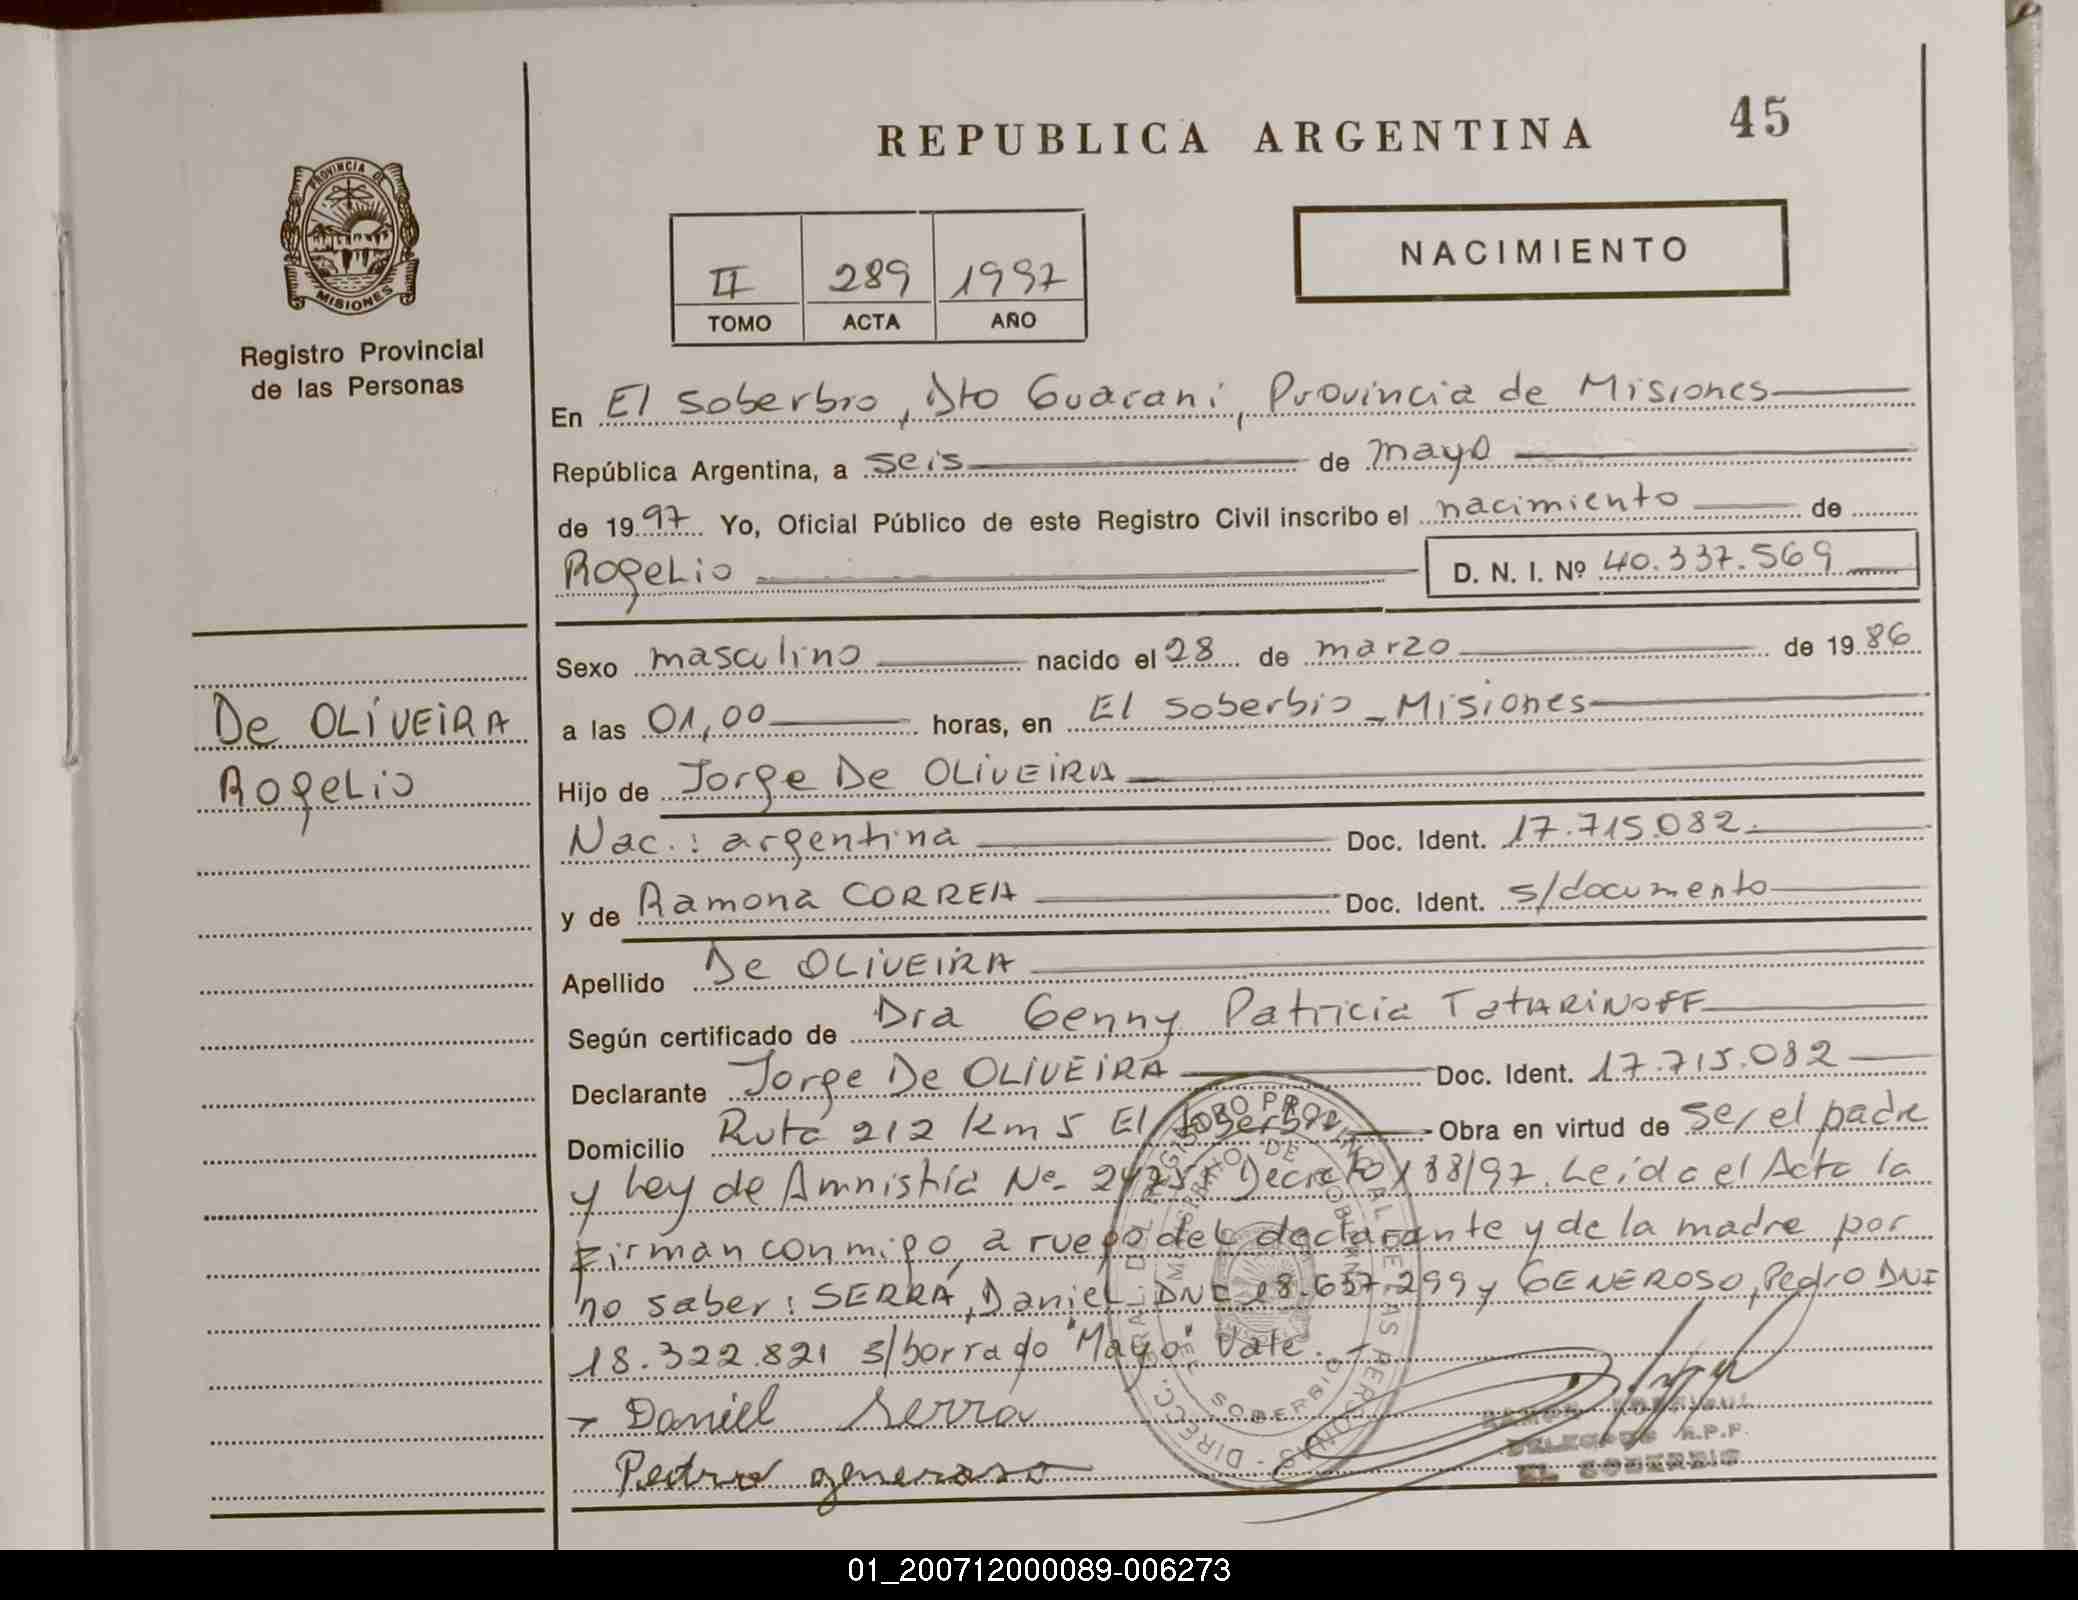 REPUBLICA ARGENTINA
45
PROVINCIA DE
MISIONES
Registro Provincial
de las Personas
II 289 1997
TOMO ACTA AÑO
NACIMIENTO
En El Soberbio, Dto Guarani, Provincia de Misiones
República Argentina, a seis de mayo
de 1997 Yo, Oficial Público de este Registro Civil inscribo el nacimiento de
Rogelio D. N. I. Nº 40.337.569
Sexo masculino nacido el 28 de marzo de 1986
De OLIVEIRA
Rogelio
a las 01,00 horas, en El Soberbio - Misiones
Hijo de Jorge De OLIVEIRA
Nac.: argentina Doc. Ident. 17.715.082
y de Ramona CORREA Doc. Ident. s/documento
Apellido De OLIVEIRA
Según certificado de Dra Genny Patricia TATARINOFF
Declarante Jorge De OLIVEIRA Doc. Ident. 17.715.082
Domicilio Ruta 212 Km 5 El Soberbio Obra en virtud de ser el padre
y Ley de Amnistía Nº Decreto 188/97. Leida el Acta la
Firman conmigo, a ruego del declarante y de la madre por
no saber: SERRA, Daniel DNI 18.637.299 y GENEROSO, Pedro DNI
18.322.821 s/borrado "Mayo" Vale.
Daniel Serra
Pedro generoso
DIRECC. GRAL. DEL REGISTRO PROVINCIAL DE LAS PERSONAS
SOBERBIO
RAMON
DELEGADO R.P.P.
EL SOBERBIO
01_200712000089-006273